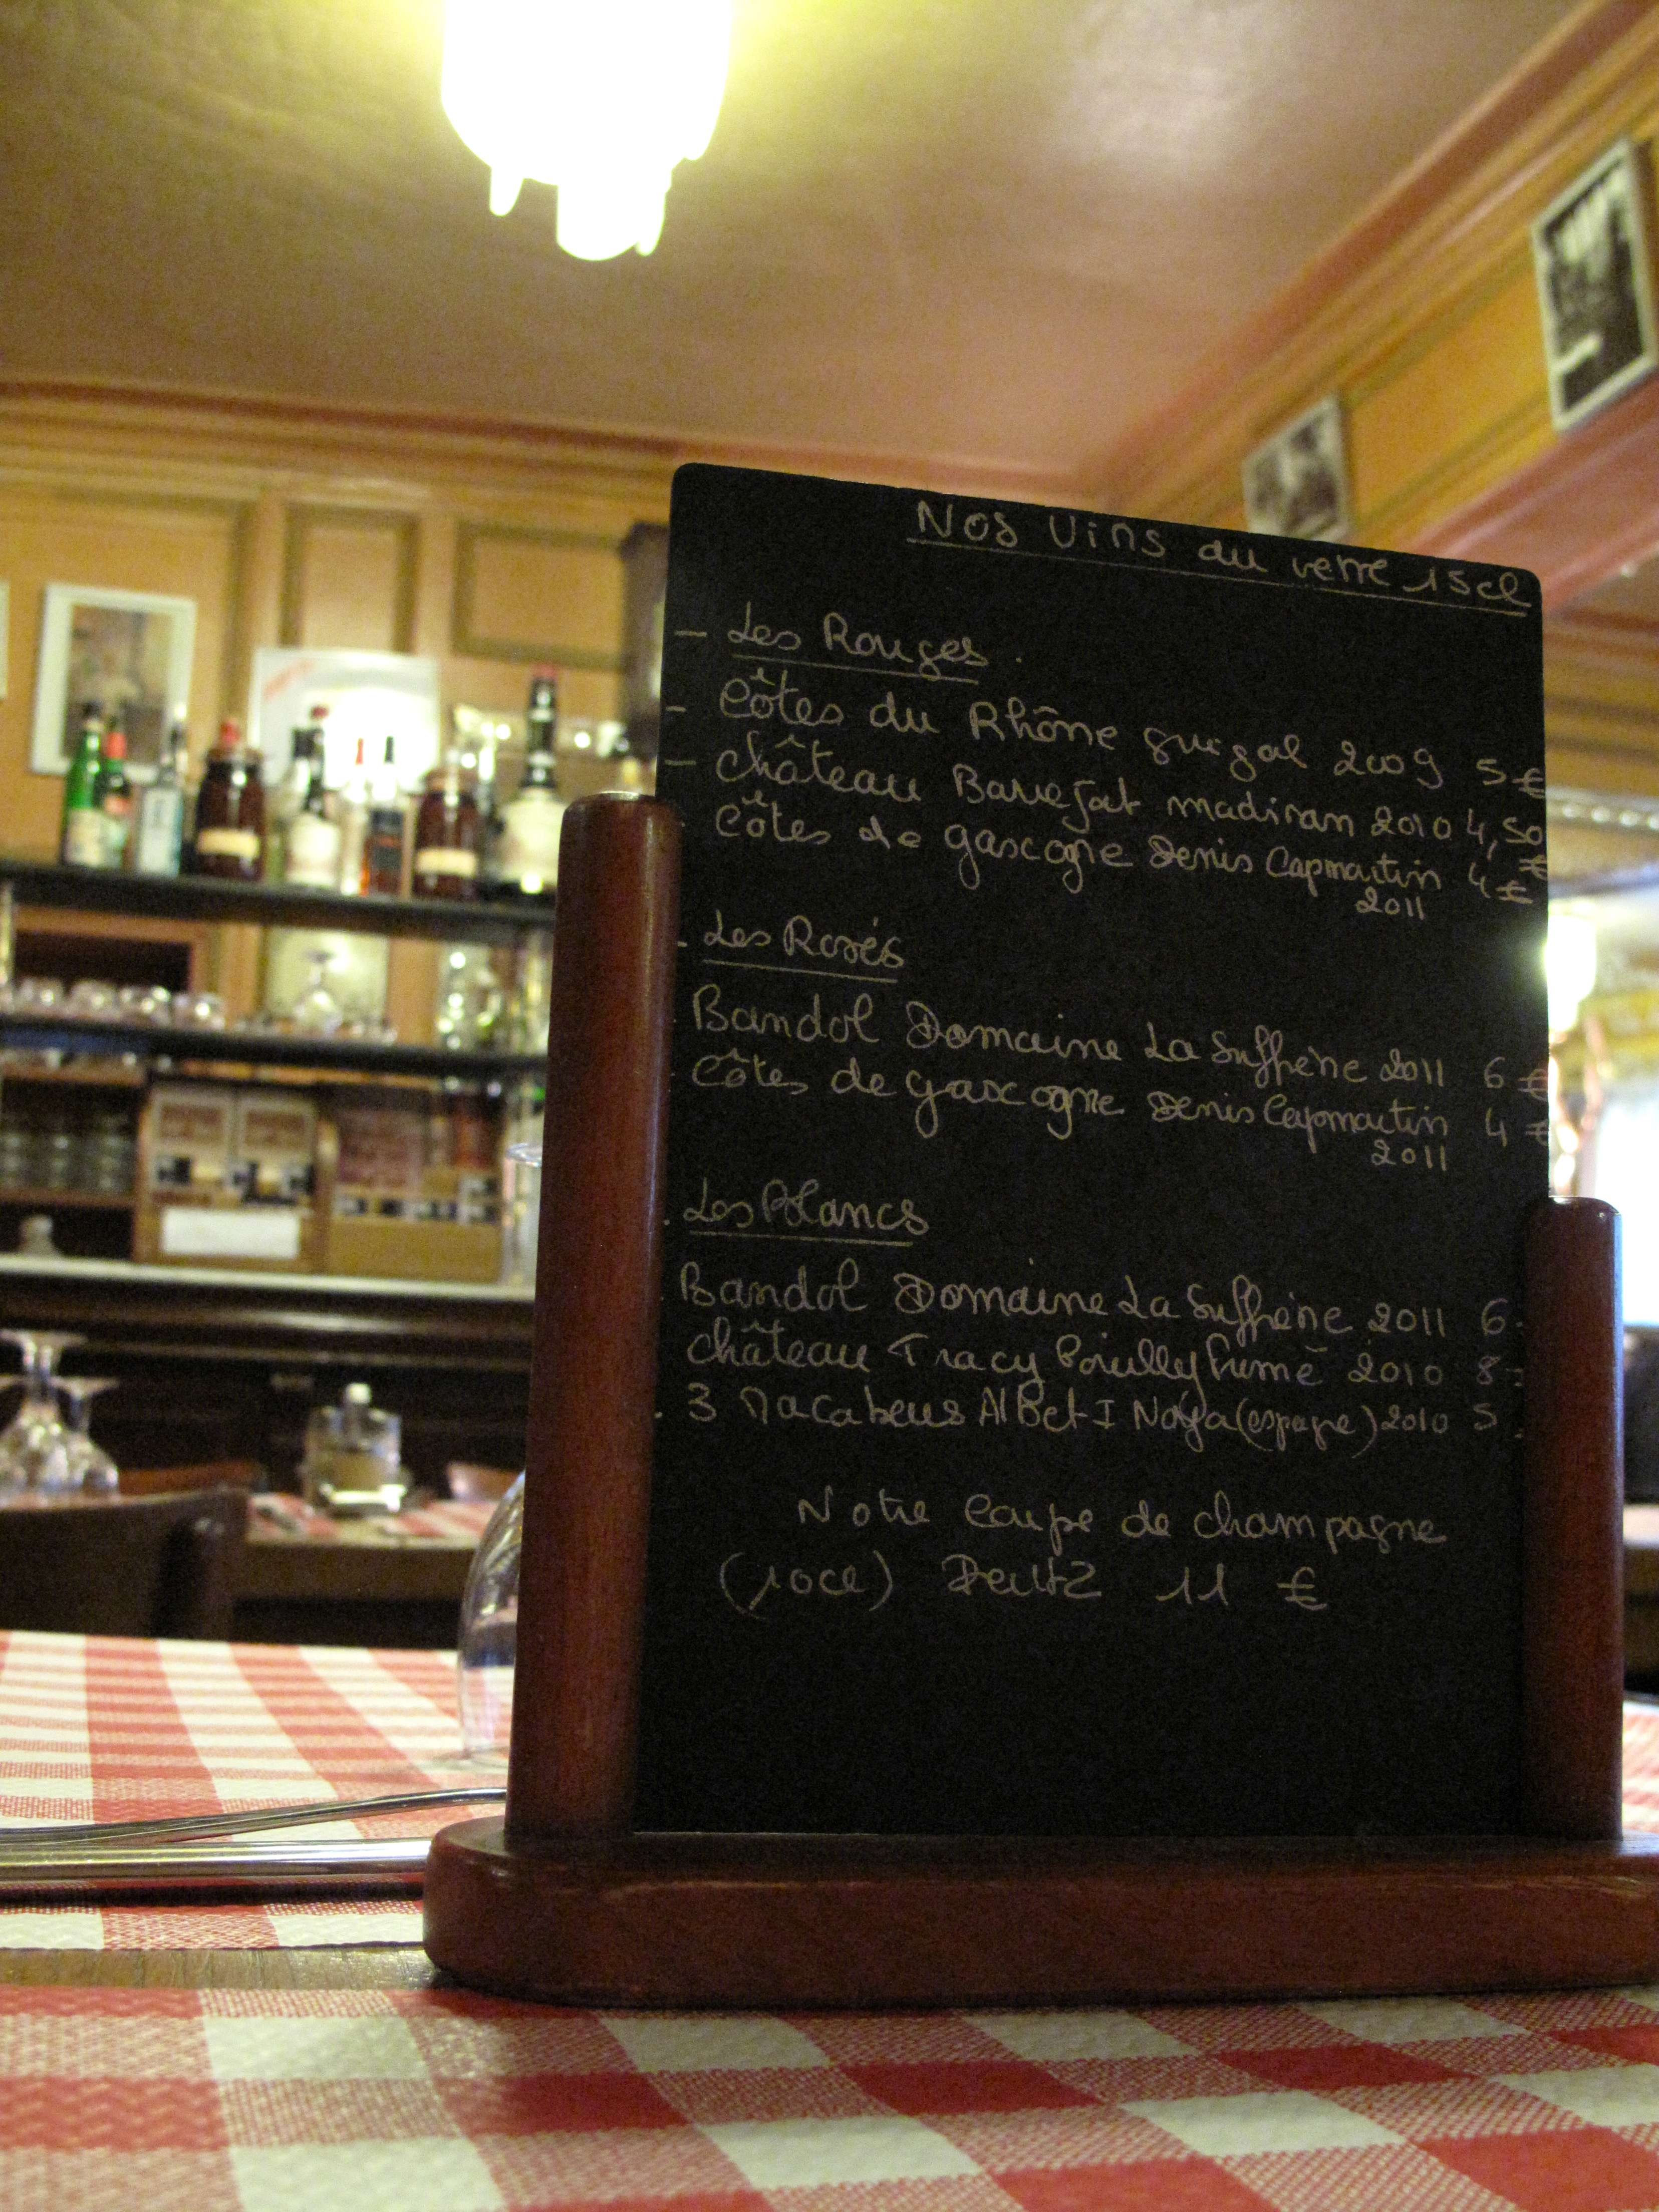 Nos Vins au verre 15cl
- Les Rouges.
- Côtes du Rhône guigal 2009 5 €
- château Barrejat madiran 2010 4,50 €
Côtes de gascogne Denis Capmartin 4 €
2011
- Les Rosés
Bandol Domaine La Suffrène 2011 6 €
Côtes de gascogne Denis Capmartin 4 €
2011
. Les Blancs
. Bandol Domaine La Suffrène 2011 6.
château Tracy Pouilly fumé 2010 8
. 3 Macabeus Albet I Noya (espagne) 2010 5
Notre coupe de champagne
(10cl) Deutz 11 €